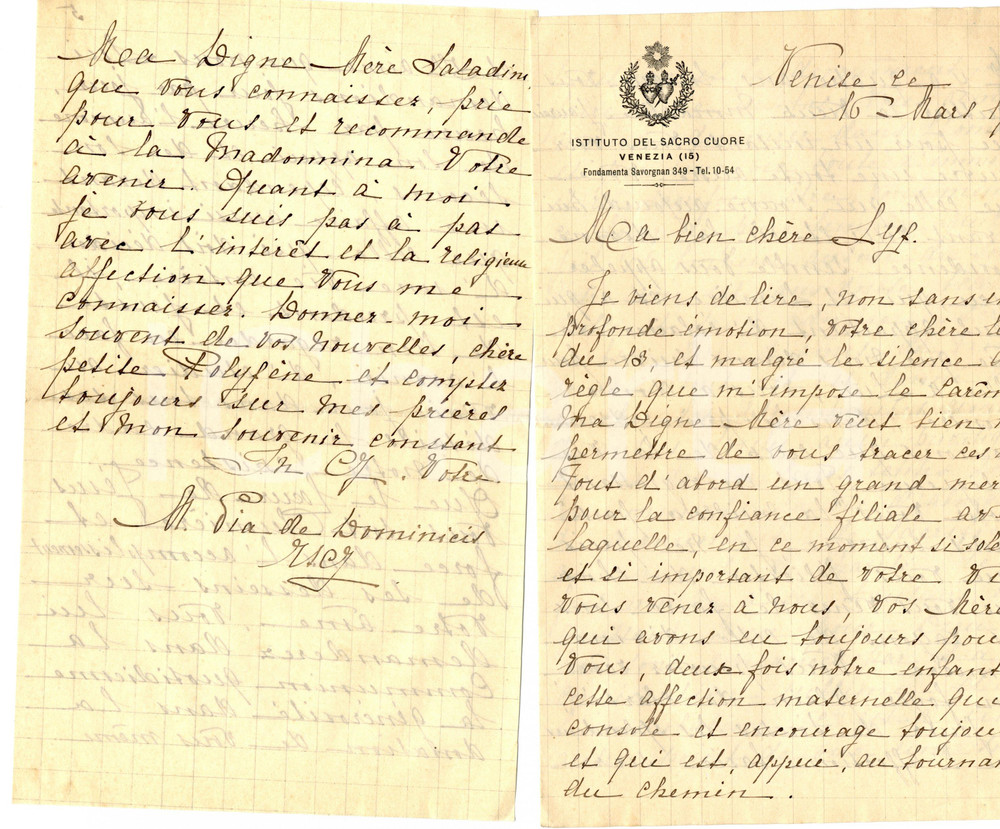 Ma Digne Mère Saladini
que vous connaissez, prie
pour vous et recommande
à la Madonnina Votre
avenir. Quant à moi
je vous suis pas à pas
avec l'intérêt et la religieuse
affection que vous me
connaissez. Donnez-moi
souvent de vos nouvelles, chère
petite Polyxène et comptez
toujours sur mes prières
et mon souvenir constant
In CJ. Votre
M Pia de Dominicis
RSCJ
Venise ce
16 Mars
ISTITUTO DEL SACRO CUORE
VENEZIA (15)
Fondamenta Savorgnan 349 - Tel. 10-54
Ma bien chère Lyf.
Je viens de lire, non sans
profonde émotion, votre chère
du 13, et malgré le silence
règle que m'impose le Carêm
Ma Digne Mère veut bien
permettre de vous tracer ces
Tout d'abord un grand mer
pour la confiance filiale av
laquelle, en ce moment si sole
et si important de votre vi
vous venez à nous, vos Mère
qui avons eu toujours pou
vous, deux fois notre enfant
cette affection maternelle qu
console et encourage toujou
et qui est, appui, au tournan
du chemin.